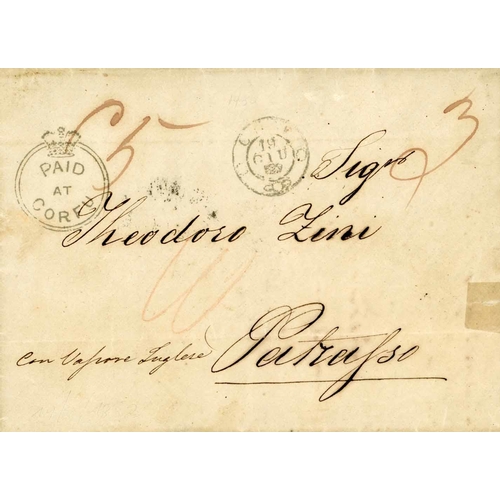 PAID
AT
CORFU
19
GIU
Sigr
Theodoro Zini
Con Vapore Inglese
Patrasso
5
3